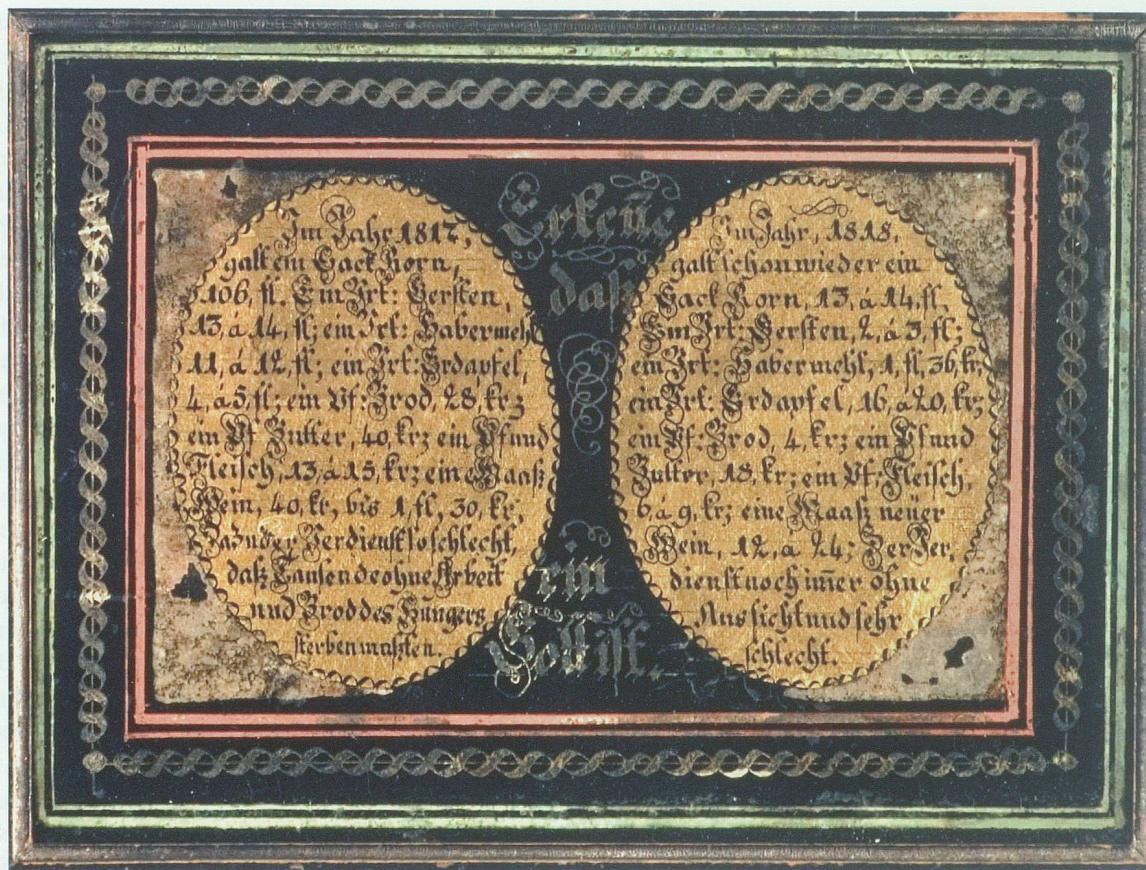 Erkeñe
daß
ein
Gott ist.
Im Jahr 1817,
galt ein Sack Korn,
106, fl. Ein Vrt: Gersten,
13, á 14, fl; ein Vrt: Habermehl
11, á 12, fl; ein Vrt: Erdapfel,
4, á 5, fl; ein Pf: Brod, 28, kr;
ein Pf Butter, 40, kr; ein Pfund
Fleisch, 13, á 15, kr; ein Maaß
Wein, 40, kr, bis 1, fl, 30, kr,
Da der Verdienst so schlecht,
daß Tausende ohne Arbeit
und Brod des Hungers
sterben mußten.
Im Jahr, 1818,
galt schon wieder ein
Sack Korn, 13, á 14, fl,
Ein Vrt: Gersten, 2, á 3, fl;
ein Vrt: Habermehl, 1, fl, 36, kr;
ein Vrt: Erdapfel, 16, á 20, kr;
ein Pf: Brod, 4, kr; ein Pfund
Butter, 18, kr; ein Pf: Fleisch,
6 á 9, kr; eine Maaß neüer
Wein, 12, a 24; Der Ver,
dienst noch im̄er ohne
Aussicht und sehr
schlecht.